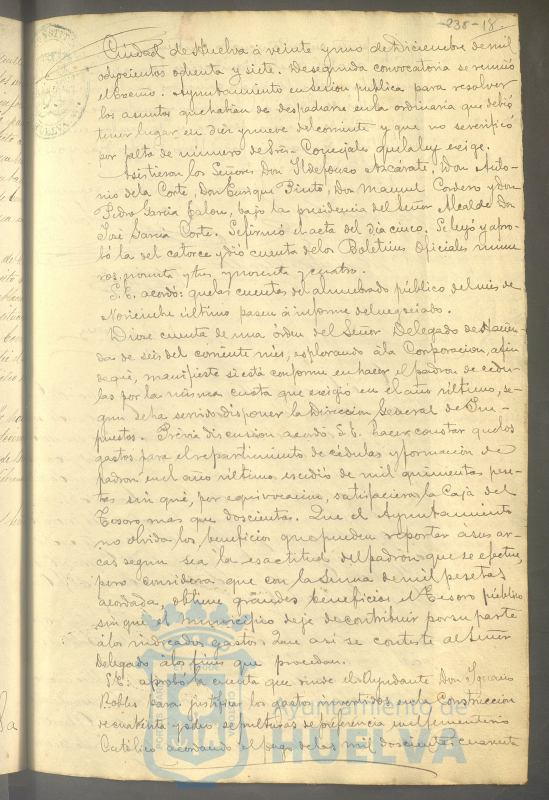 -238-18-
Ciudad de Huelva á veinte y uno de Diciembre de mil
ochocientos ochenta y siete. De segunda convocatoria se reunió
el Excmo. Ayuntamiento en sesion publica para resolver
los asuntos que habian de despacharse en la ordinaria que debió
tener lugar en diez y nueve del corriente y que no se verificó
por falta de número de Sres. Concejales que la ley exige.
Asistieron los Señores Don Ildefonso Azcárate, Don Anto-
nio de la Corte, Don Enrique Pinto, Don Manuel Cordero y Don
Pedro Garcia Jalon, bajo la presidencia del Señor Alcalde Don
José Garcia Corte. Se firmó el acta del dia cinco. Se leyó y apro-
bó la del catorce y dió cuenta de los Boletines Oficiales núme-
ros noventa y tres y noventa y cuatro.
S.E. acordó: que las cuentas del alumbrado público del mes de
Noviembre último pasen á informe del negociado.
Diose cuenta de una órden del Señor Delegado de Hacien-
da de seis del corriente mes, explorando á la Corporacion, á fin
de que, manifieste si está conforme en hacer el padron de cédu-
las por la misma cuota que exigió en el año último, se-
gun se ha servido disponer la Direccion General de Im-
puestos. Prévia discusion acordó S.E. hacer constar que los
gastos para el repartimiento de cédulas y formacion de
padron en el año último, escedió de mil quinientas pese-
tas sin que, por equivocacion, satisfaciera la Caja del
Tesoro mas que doscientas. Que el Ayuntamiento
no olvida los beneficios que pueden reportar á sus ar-
cas segun sea la esactitud del padron que se efectue,
pero considera que con la suma de mil pesetas
acordada, obtiene grandes beneficios el Tesoro público
sin que el municipio deje de contribuir por su parte
á los indicados gastos. Que asi se conteste al Señor
Delegado á los fines que procedan.
S.E. aprobó la cuenta que rinde el Ayudante Don Ignacio
Robles para justificar los gastos invertidos en la Construccion
de cuarenta y ocho sepulturas de preferencia en el Cementerio
Católico acordando el pago de las mil doscientas cuarenta
Ayuntamiento de
HUELVA